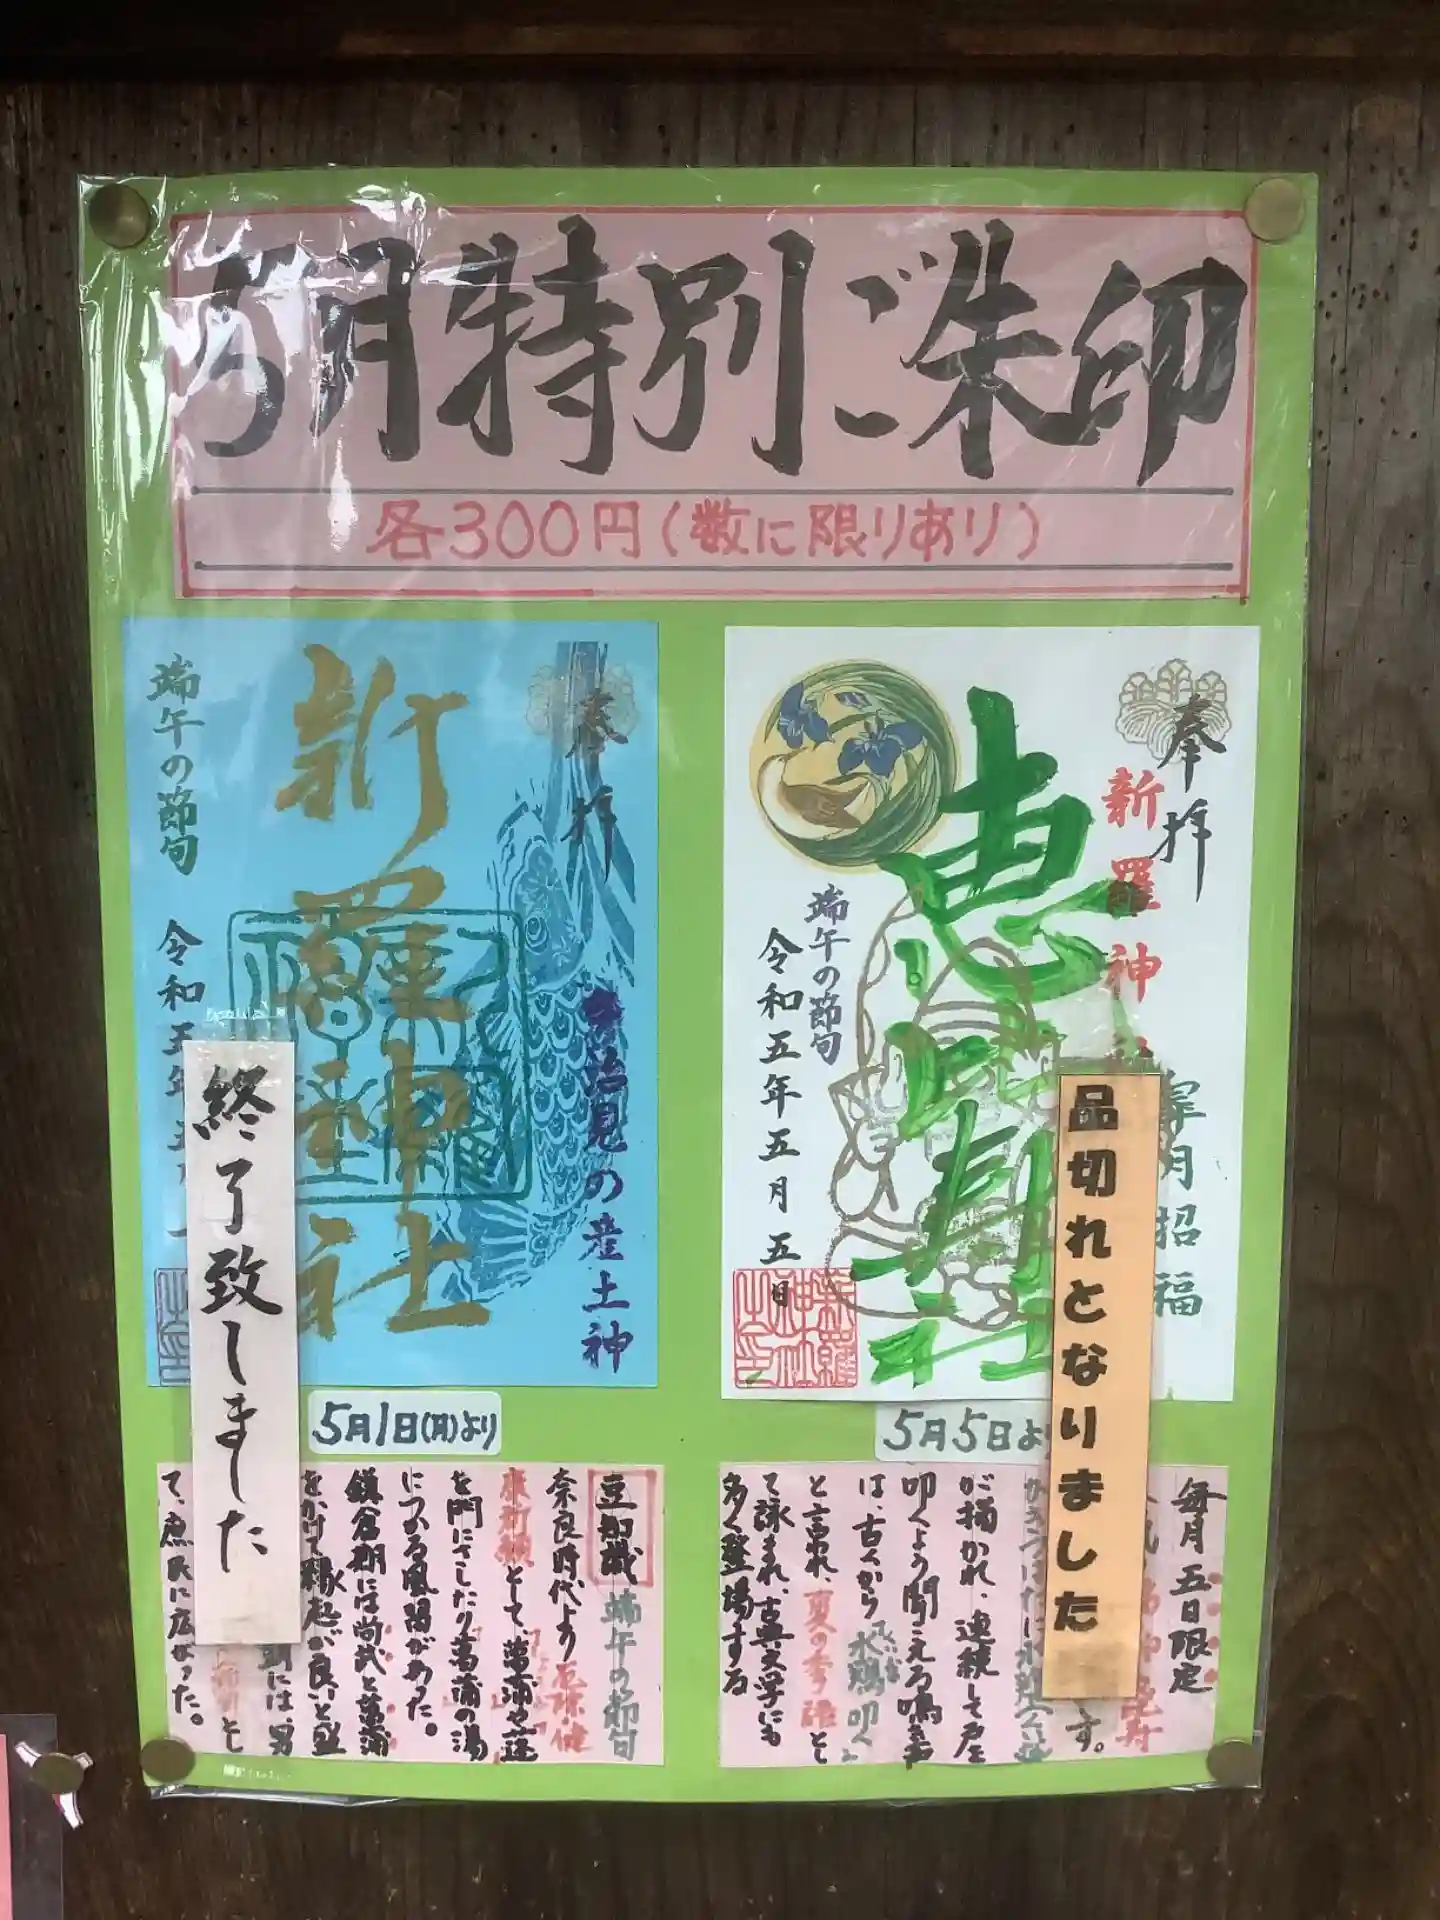 5月特別ご朱印
各300円(数に限りあり)
奉拝
多治見の産土神
新羅神社
端午の節句
令和五年五月
終了致しました
5月1日(月)より
豆知識 端午の節句
奈良時代より
として、菖蒲や蓬
を門にさしたり菖蒲の湯
につかる風習があった。
鎌倉期には尚武と菖蒲
をかけて縁起が良いと盛
には、男
と
て、庶民に広まった。
奉拝
新羅神
皐月招福
恵比寿社
端午の節句
令和五年五月五日
新羅神社
品切れとなりました
5月5日よ
毎月五日限定
す。
が描かれ、連続して戸を
叩くよう聞こえる鳴き声
は、古くから水鶏叩く
と言われ、夏の季語とし
て詠まれ、古典文学にも
多く登場する